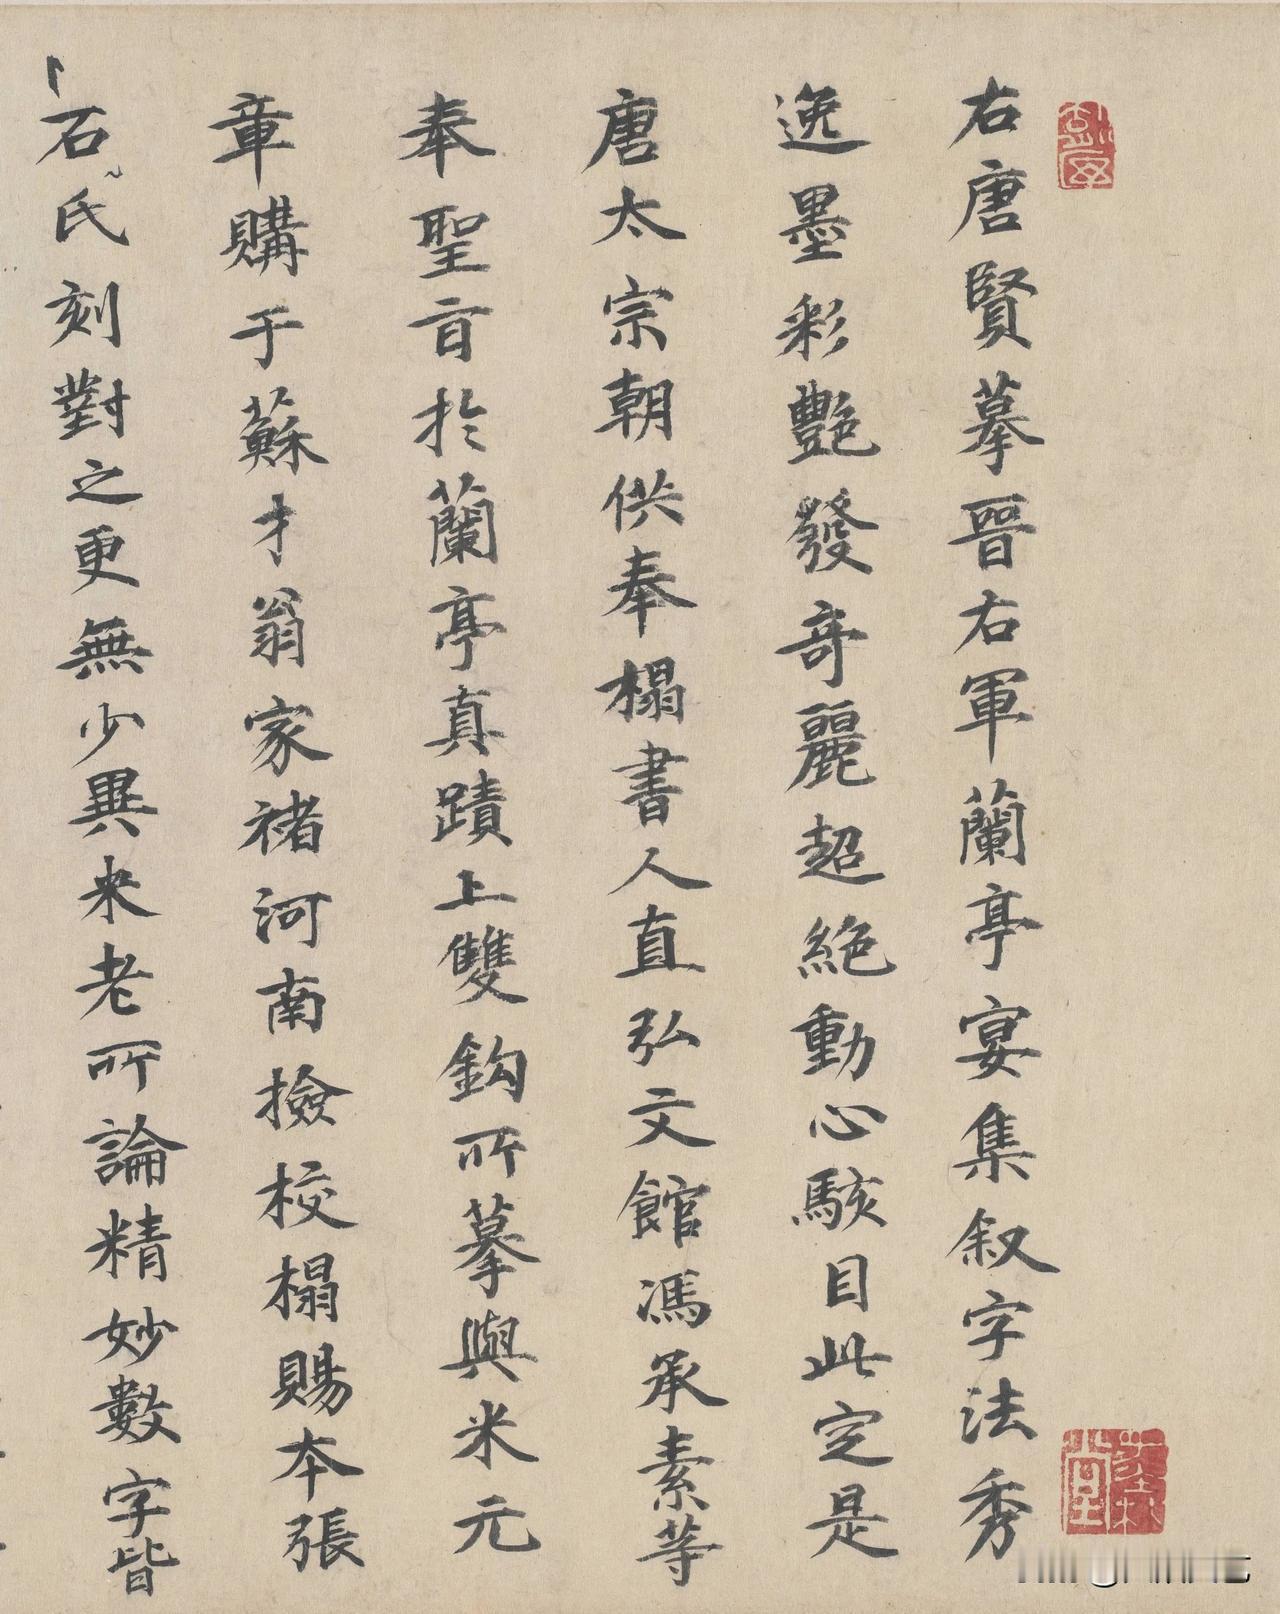 右唐賢摹晉右軍蘭亭宴集叙字法秀
逸墨彩艷發奇麗超絕動心駭目此定是
唐太宗朝供奉榻書人直弘文館馮承素等
奉聖旨於蘭亭真蹟上雙鈎所摹與米元
章購于蘇才翁家褚河南撿校榻賜本張
石氏刻對之更無少異米老所論精妙數字皆